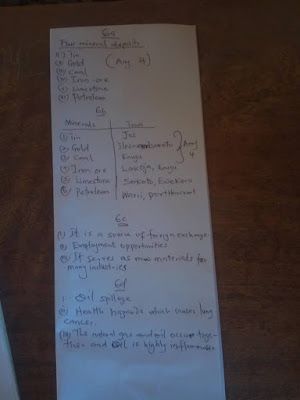 6a
Four mineral deposits
(i) Tin
(ii) Gold (Any 4)
(iii) Coal
(iv) Iron ore
(v) Limestone
(vi) Petroleum
6b
Minerals Town
(i) Tin Jos
(ii) Gold
(iii) Coal Enugu
(iv) Iron ore Lokoja, Enugu
(v) Limestone Sokoto, Ewekoro
(vi) Petroleum Warri, portharcourt
Any 4
6c
(i) It is a source of foreign exchange
(ii) Employment opportunities
(iii) It serves as raw materials for
many industries
6d
i. Oil spillage
(ii) Health hazards which causes lung
cancer
(iii) The natural gas and oil occur toge-
ther and oil is highly inflammable